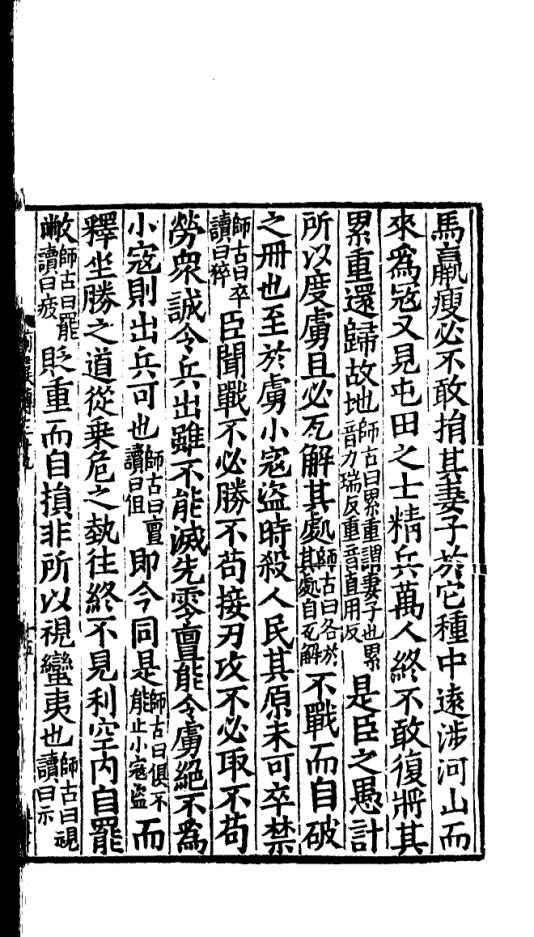 馬羸瘦必不敢捐其妻子於它種中遠涉河山而
來為寇又見屯田之士精兵萬人終不敢復將其
累重還歸故地師古曰累重謂妻子也累音力瑞反重音直用反是臣之愚計
所以度虜且必瓦解其處師古曰各於其處自瓦解不戰而自破
之冊也至於虜小寇盜時殺人民其原未可卒禁
師古曰卒讀曰猝臣聞戰不必勝不苟接刃攻不必取不苟
勞衆誠令兵出雖不能滅先零亶能令虜絕不為
小寇則出兵可也師古曰亶讀曰但即今同是師古曰俱不能止小寇盜而
釋坐勝之道從乗危之埶往終不見利空內自罷
敝師古曰罷讀曰疲貶重而自損非所以視蠻夷也師古曰視讀曰示